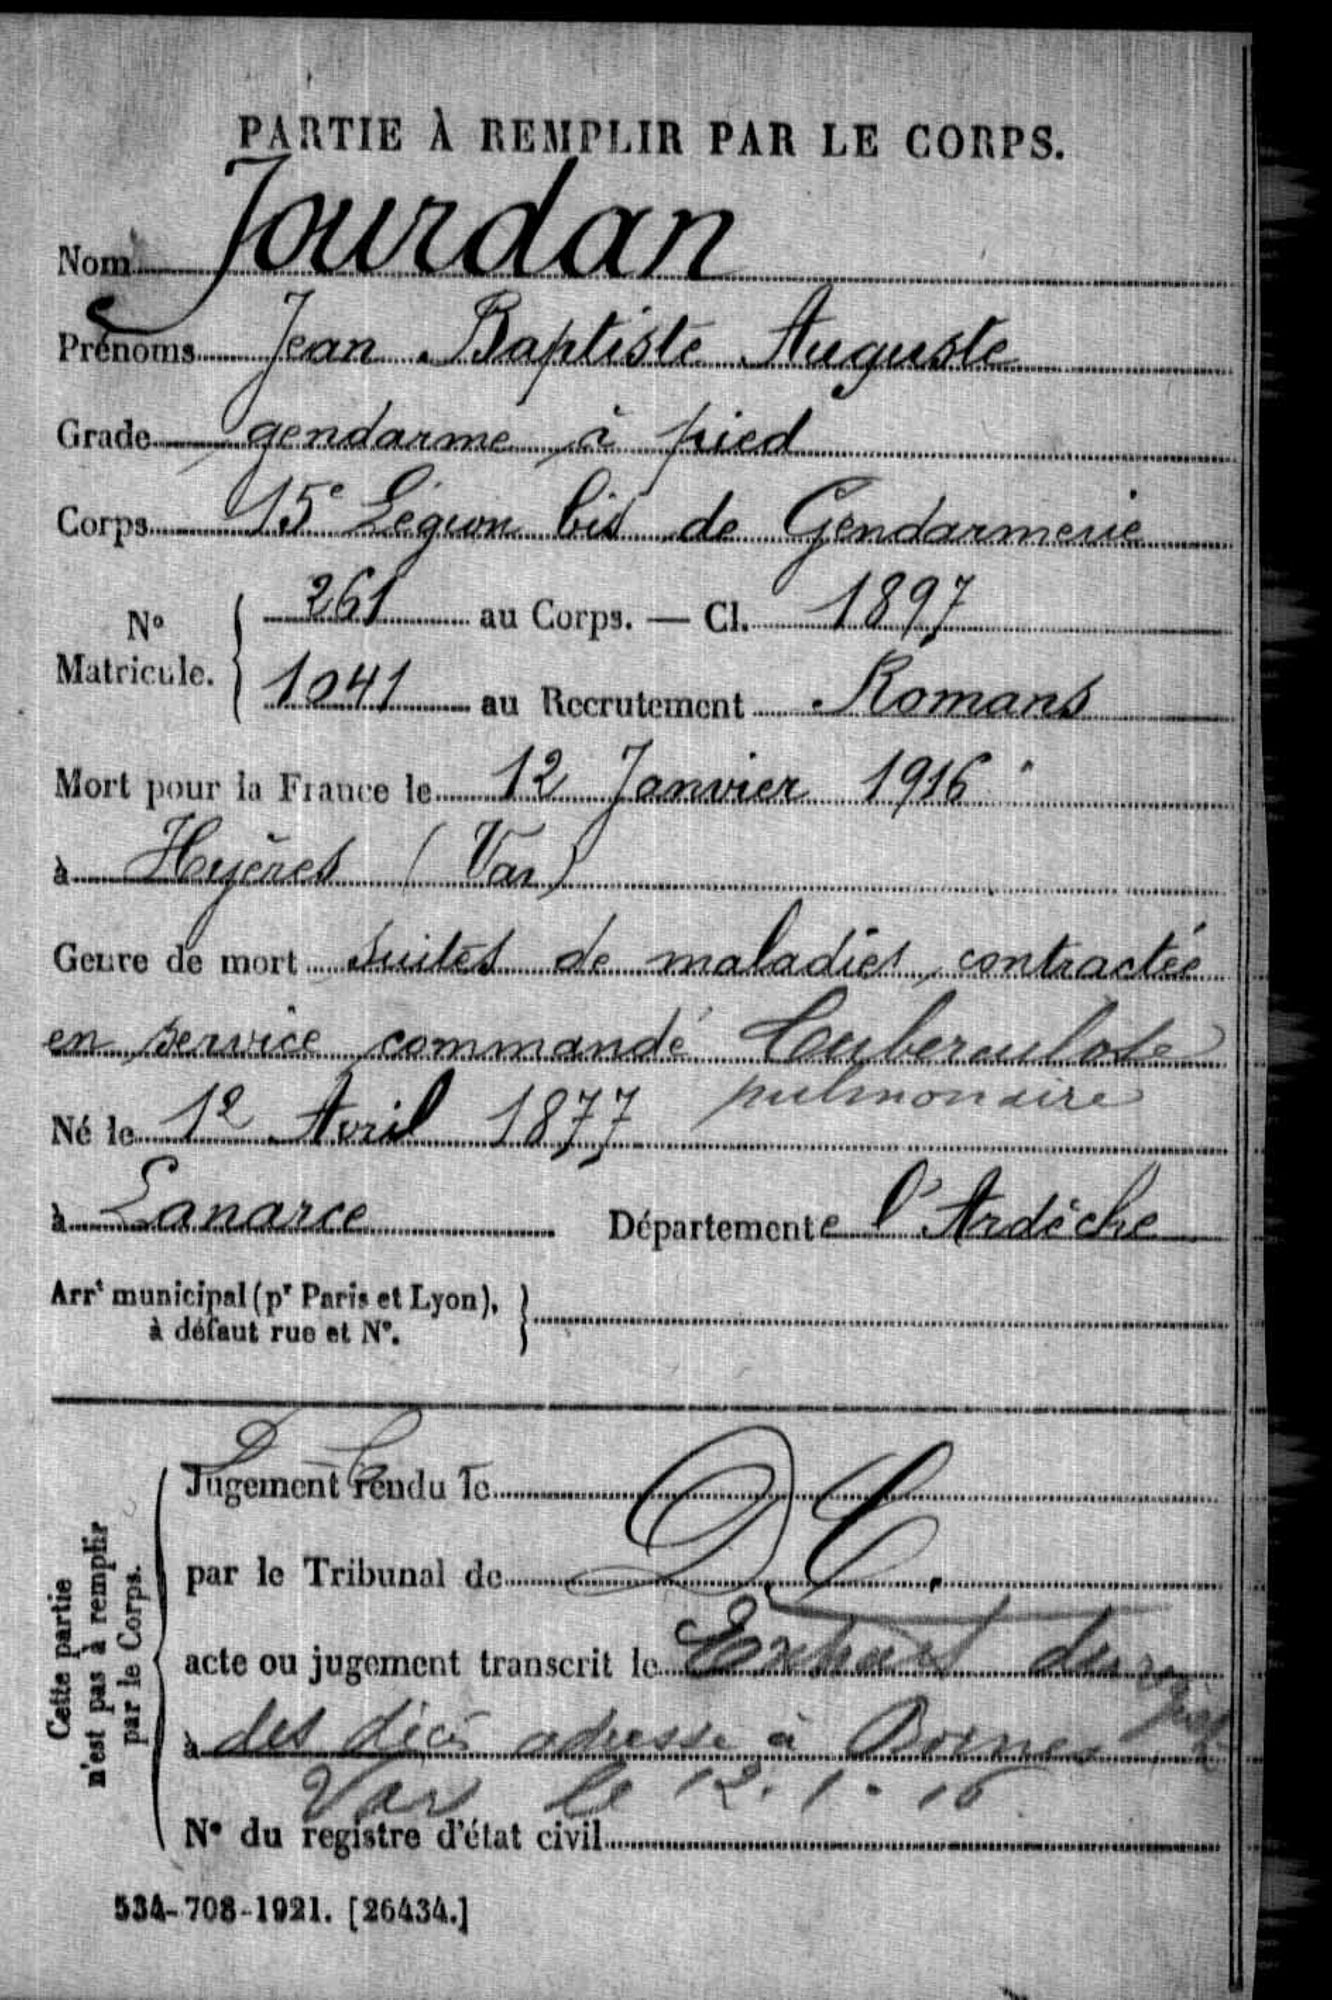 PARTIE À REMPLIR PAR LE CORPS.
Nom Jourdan
Prénoms Jean Baptiste Auguste
Grade gendarme à pied
Corps 15e Légion bis de Gendarmerie
No Matricule. 261 au Corps. — Cl. 1897
1041 au Recrutement Romans
Mort pour la France le 12 Janvier 1916
à Hyères (Var)
Genre de mort suites de maladies contractée
en service commandé Tuberculose
pulmonaire
Né le 12 Avril 1877
à Lanarce Département e l'Ardèche
Arrt municipal (pr Paris et Lyon),
à défaut rue et No.
Cette partie
n'est pas à remplir
par le Corps.
Jugement rendu le
par le Tribunal de D.C.
acte ou jugement transcrit le Extrait du
à des décès adresse à Bormes
Var le 12.1.16
No du registre d'état civil
534-708-1921. [26434.]